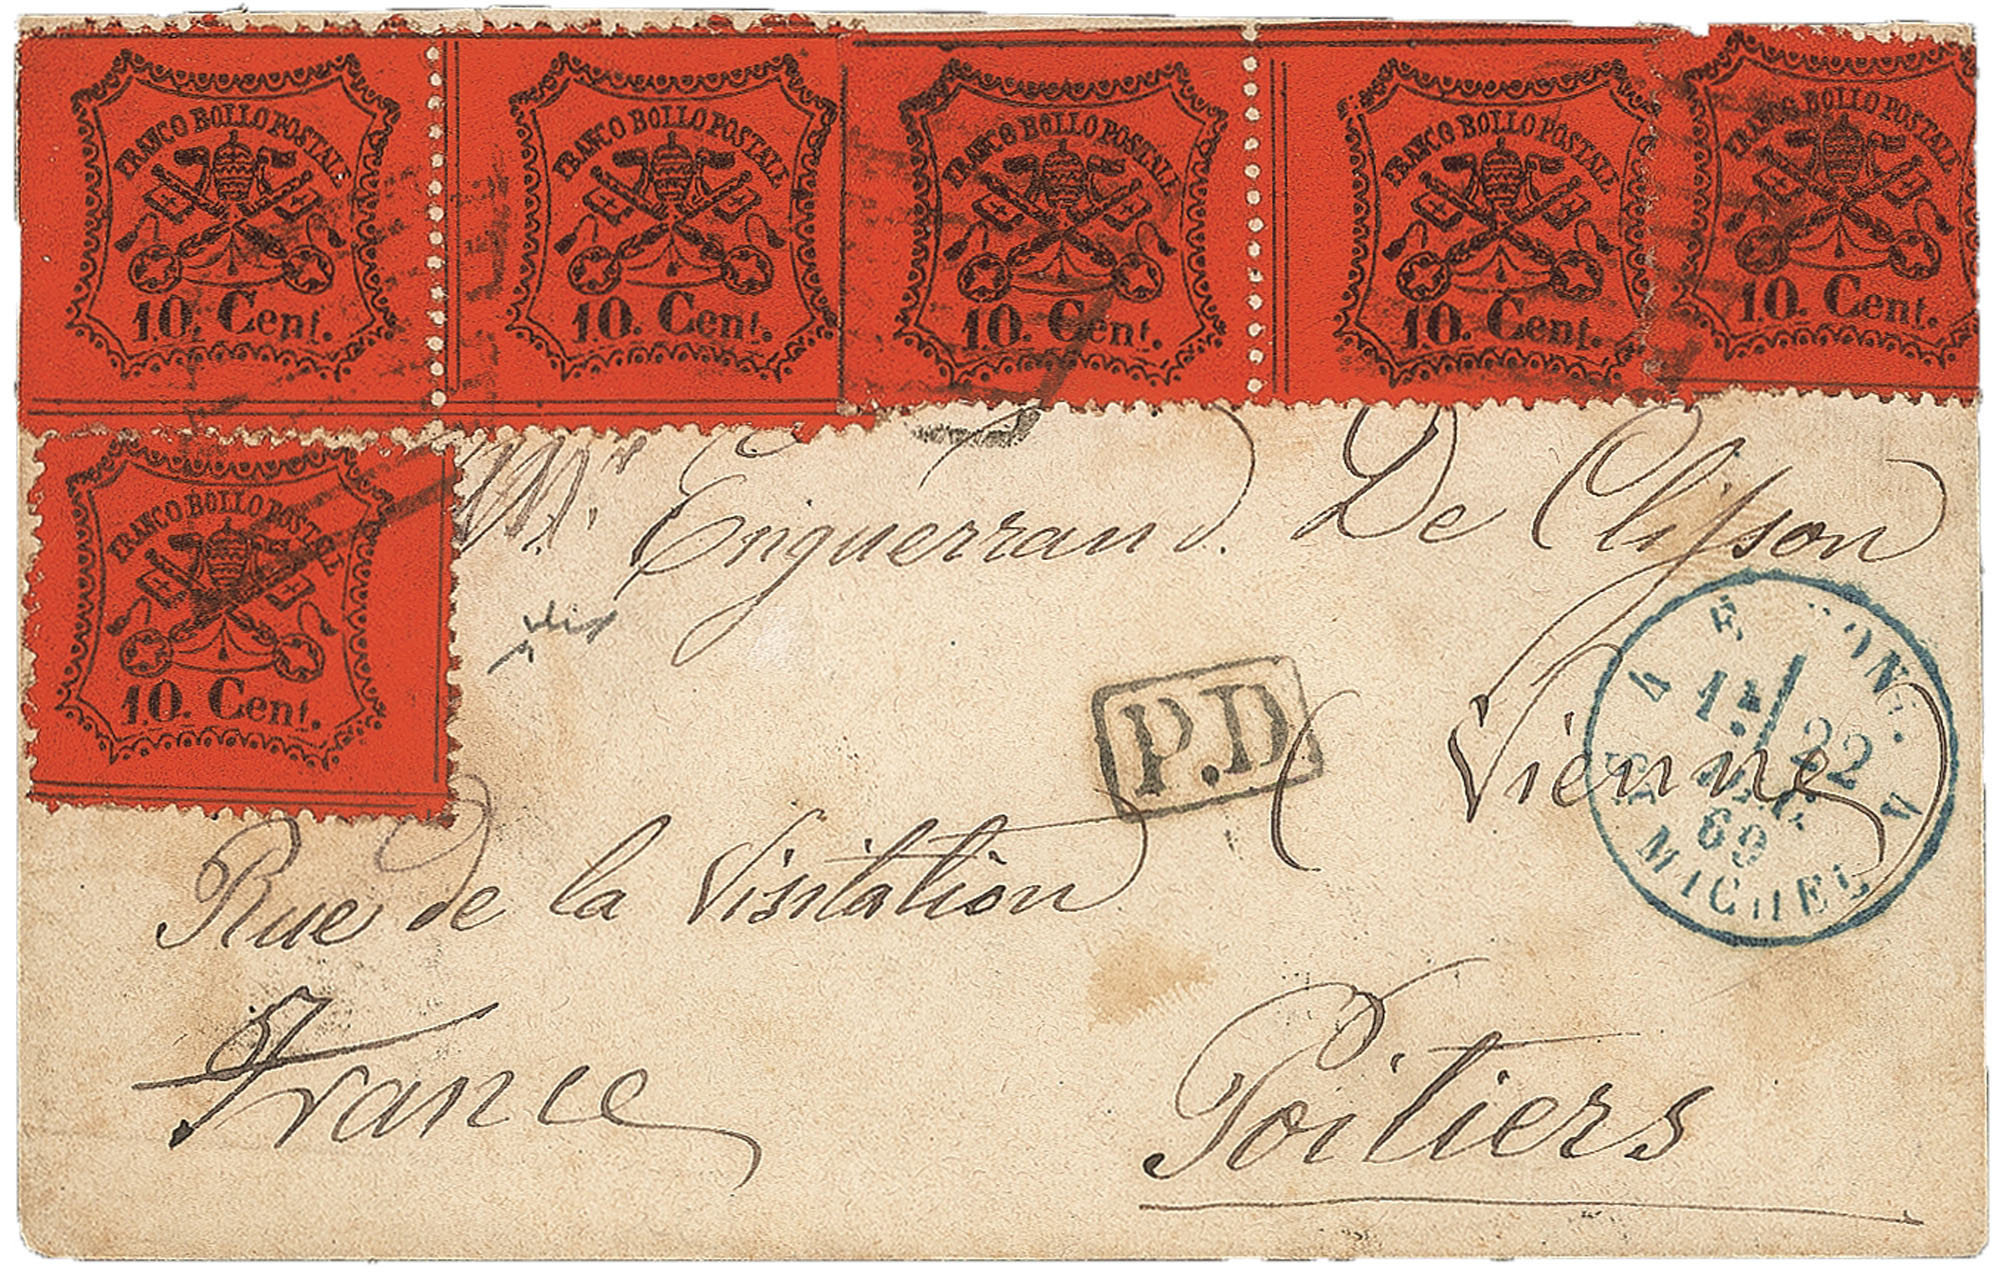 FRANCO BOLLO POSTALE
10. Cent.
FRANCO BOLLO POSTALE
10. Cent.
FRANCO BOLLO POSTALE
10. Cent.
FRANCO BOLLO POSTALE
10. Cent.
FRANCO BOLLO POSTALE
10. Cent.
FRANCO BOLLO POSTALE
10. Cent.
Mr. Enguerrand. De Clisson
P.D.
Vienne
22
69
MICHEL
Rue de la Visitation
France
Poitiers